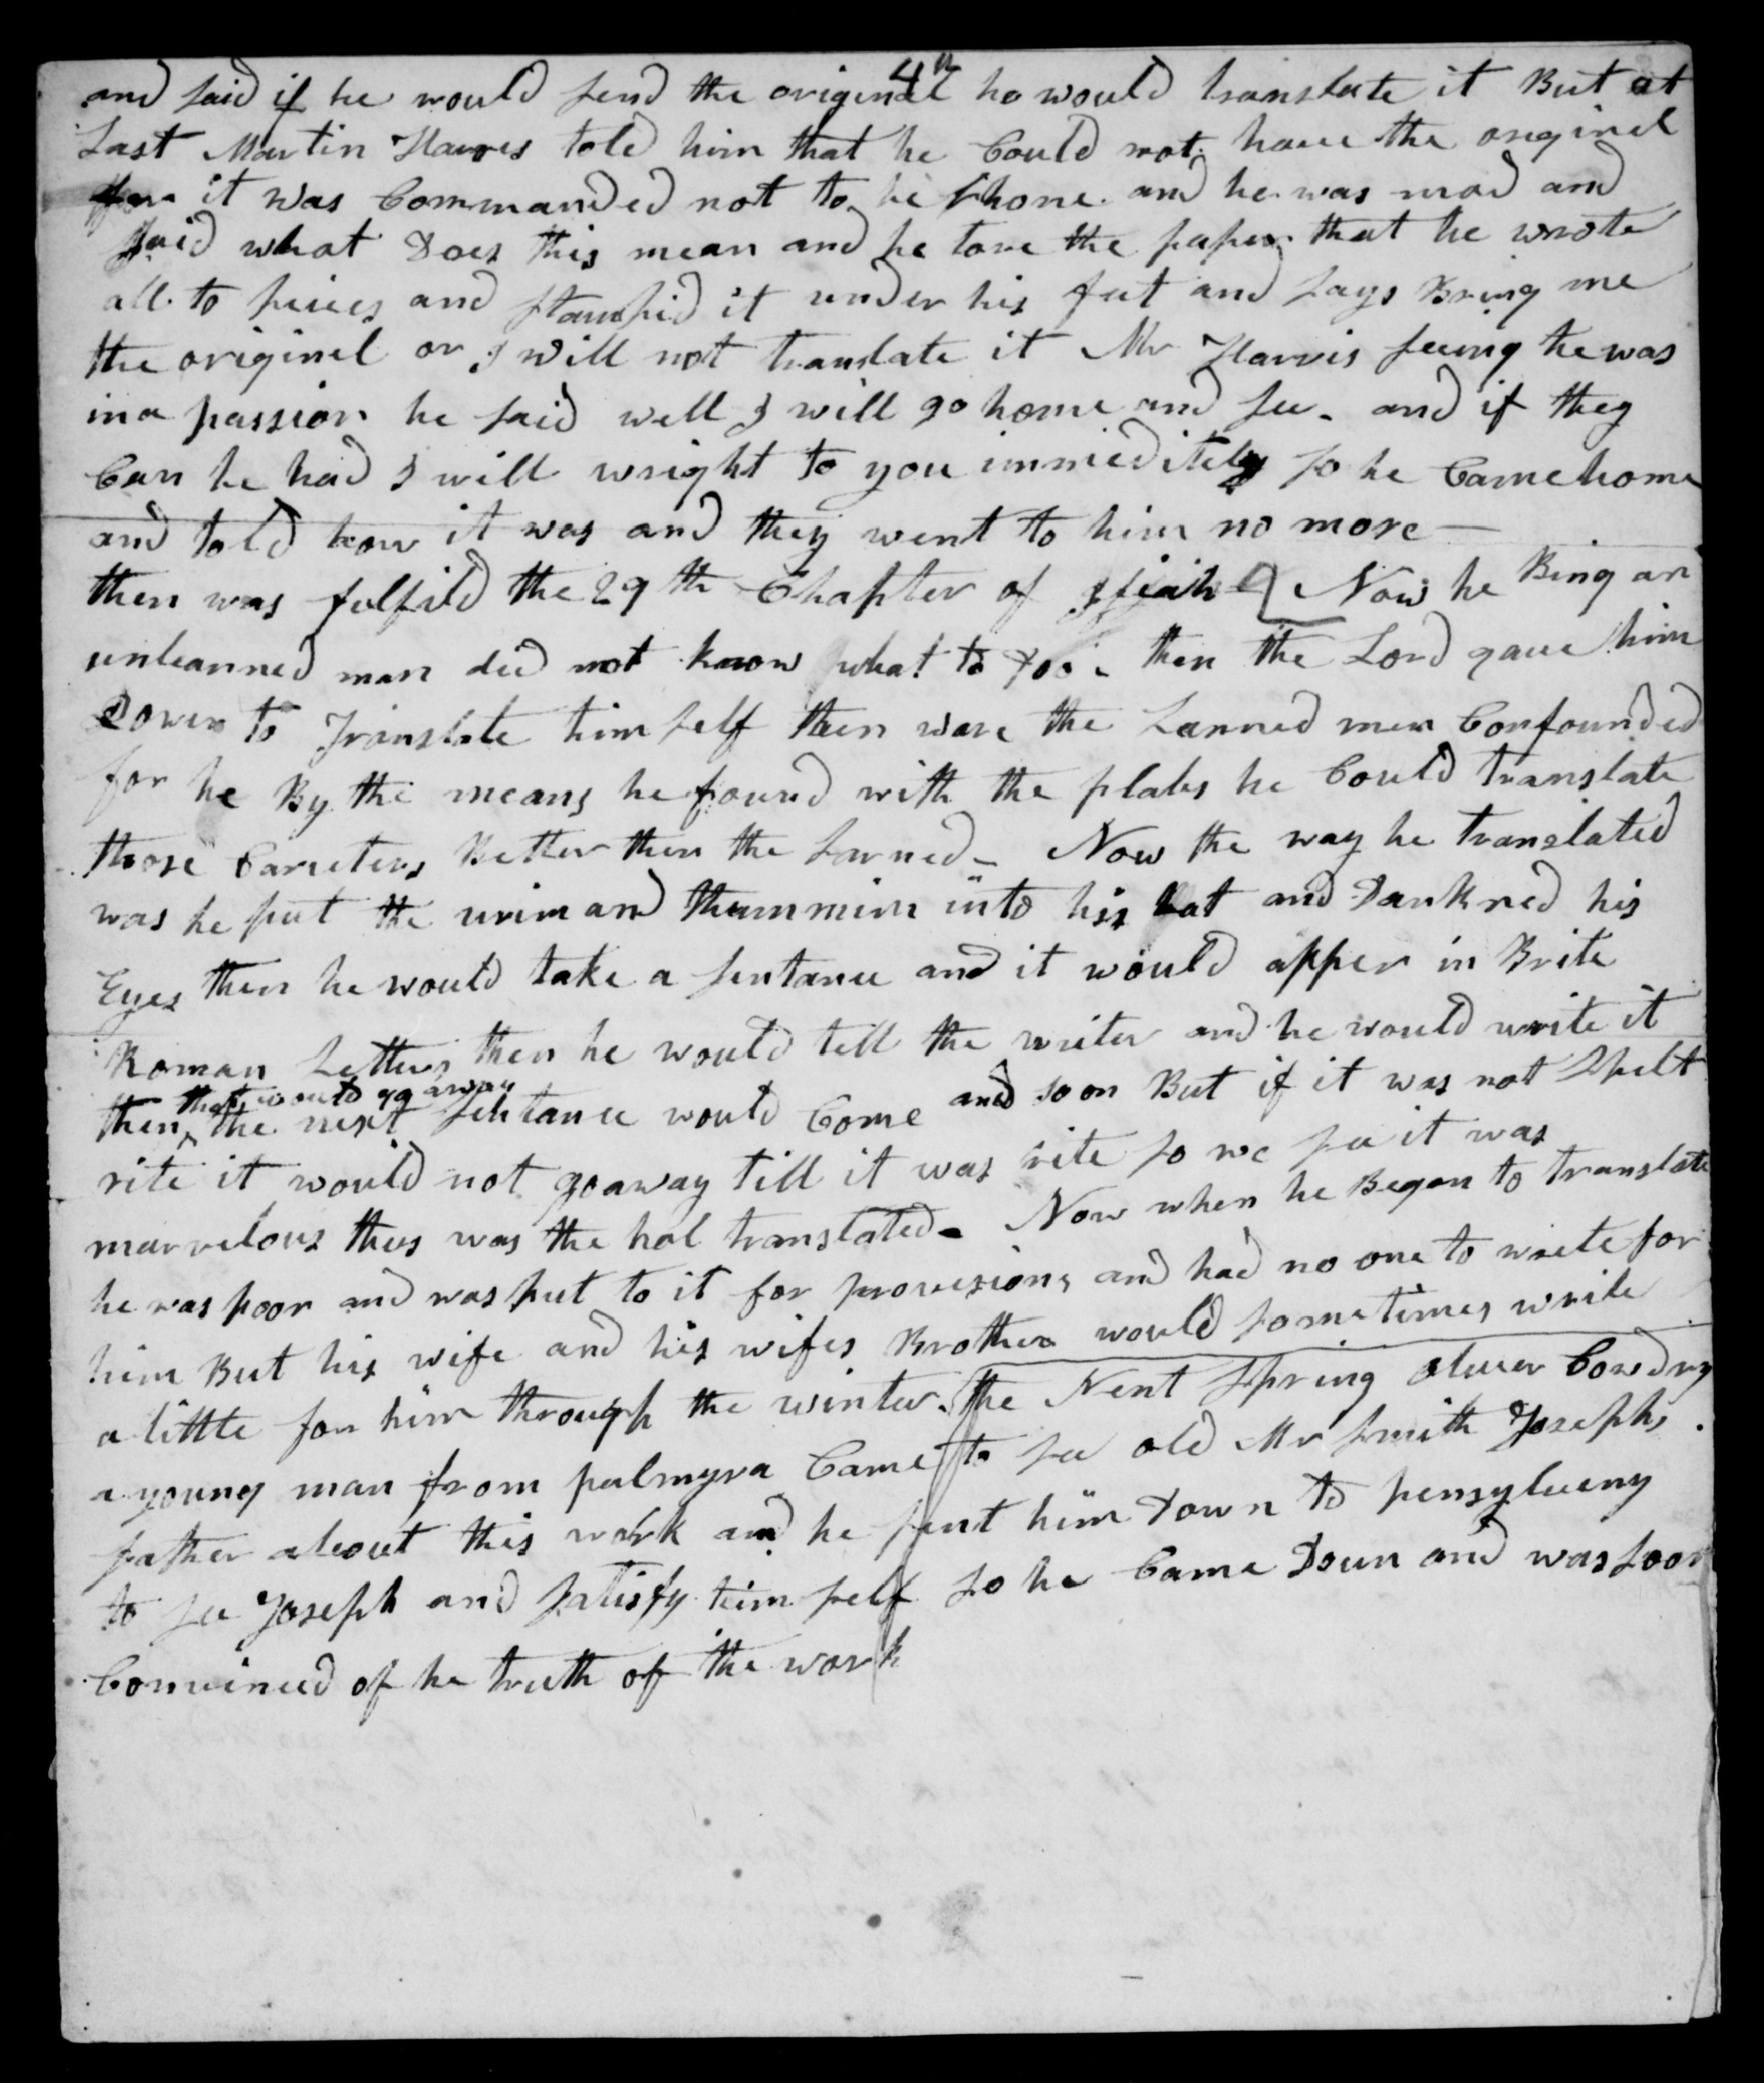 4th
and said if he would send the originel he would translate it But at
Last Martin Harres told him that he Could not have the originel
for it was Commanded not to be shone and he was mad and
said what Does this mean and he tore the paper that he wrote
all to peices and stampid it under his feet and says Bring me
the originel or I will not translate it Mr Harris seeing he was
in a passion he said well I will go home and see and if they
Can be had I will wright to you immeditely so he Came home
and told how it was and they went to him no more—
then was fulfild the 29th Chapter of Isiah Now he Bing an
unlearned man did not know what to Do. then the Lord gave him
Power to Translate him self then ware the Larned men Confounded
for he By the means he found with the plates he Could translate
those Caricters Better then the Larned— Now the way he translated
was he put the urim and thummim into his hat and Darkned his
Eyes then he would take a sentance and it would apper in Brite
Roman Letters then he would tell the writer and he would write it
then that would go away the next sentance would Come and so on But if it was not Spelt
rite it would not go away till it was rite so we see it was
marvelous thus was the hol translated- Now when he Began to translate
he was poor and was put to it for provisions and had no one to write for
him But his wife and his wifes Brother would sometimes write
a little for him through the winter. the Next Spring oliver Cowdry
a young man from palmyra Came to see old Mr Smith Josephs
father about this work and he sent him Down to pensylveny
to see Joseph and satisfy him self so he Came Down and was soon
Convinced of he truth of the work